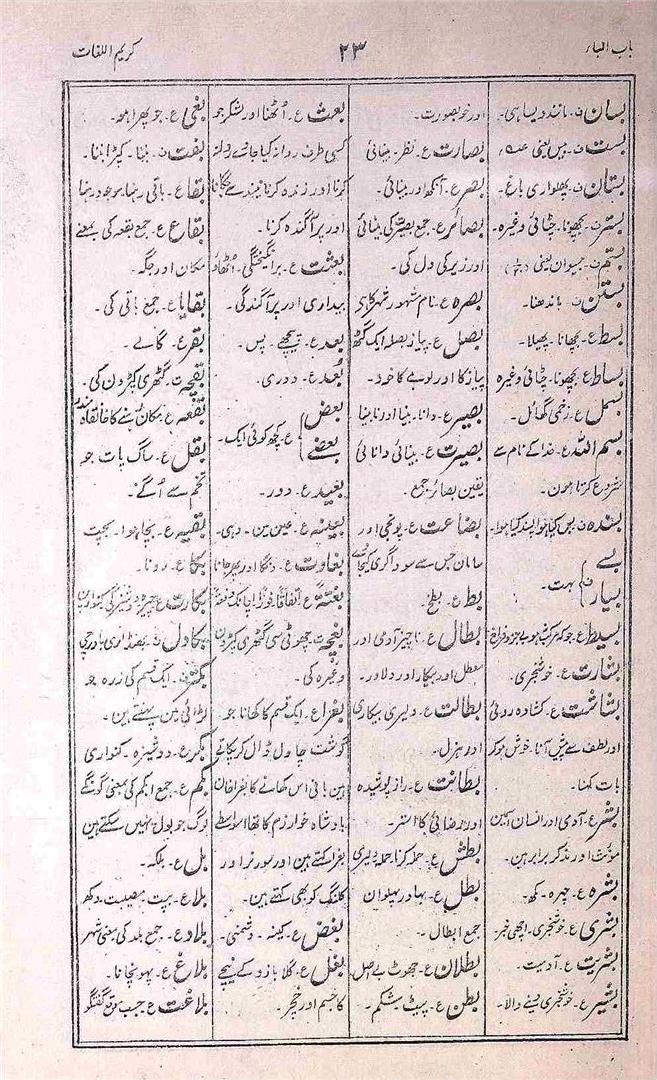 باب البار
۲۳
کریم اللغات
بسان ف۔ مانند دیسا ہی۔
بست ف۔ بیس یعنی عدد
بستان ف۔ پھلواری باغ۔
بستر ف۔ بچھونا۔ چٹائی وغیرہ۔
بستم ف۔ بیسواں یعنی
بستن ف۔ باندھنا۔
بسط ع۔ بچھانا۔ پھیلا۔
بساط ع۔ بچھونا۔ چٹائی وغیرہ
بسمل ع۔ زخمی گھائل۔
بسم اللہ ع۔ خدا کے نام سے
شروع کرتا ہون۔
بسندہ ف۔ بس کیا ہوا پسند کیا ہوا۔
بسے
بسیار } ف۔ بہت۔
بسیط ع۔ جو کہ مرکب ہو بے جزو فراخ
بشارت ع۔ خوشخبری۔
بشاشت ع۔ کشادہ روئی
اور لطف سے پیش آنا۔ خوش ہو کر
بات کہنا۔
بشر ع۔ آدمی اور انسان اسمین
مؤنث اور مذکر برابر ہین۔
بشرہ ع۔ چہرہ۔ مکھ۔
بشریٰ ع۔ خوشخبری۔ اچھی خبر
بشریت ع۔ آدمیت۔
بشیر ع۔ خوشخبری دینے والا۔
اور خوبصورت۔
بصارت ع۔ نظر۔ بینائی
بصر ع۔ آنکھ اور بینائی۔
بصائر ع۔ جمع بصیرت کی بینائی
اور زیر کی دل کی۔
بصرہ ع۔ نام شہور شہر کا ہی
بصل ع۔ پیاز بصلہ ایک گٹھ
پیاز کا اور لوہے کا خود۔
بصیر ع۔ دانا۔ بینا اور نابینا
بصیرت ع۔ بینائی دانائی
یقین بصائر جمع۔
بضاعت ع۔ پونجی اور
سامان جس سے سوداگری کیجئے
بط ع۔ بطخ۔
بطال ع۔ ناچیز آدمی اور
معطل اور بیکار اور دلاور۔
بطالت ع۔ دلیری بیکاری
اور ہزل۔
بطانت ع۔ راز پوشیدہ
اور رضائی کا استر۔
بطش ع۔ حملہ کرنا۔ حملہ دلیری
بطل ع۔ بہادر پہلوان
جمع ابطال۔
بطلان ع۔ جھوٹ بے اصل۔
بطن ع۔ پیٹ شکم۔
بعث ع۔ اُٹھنا اور لشکر جو
کسی طرف روانہ کیا جائے روانہ
کرنا اور زندہ کرنا نیند سے جگانا
اور پراگندہ کرنا۔
بعثت ع۔ برانگیختگی۔ اُٹھانا
بیداری اور پراگندگی۔
بعد ع۔ پیچھے۔ پس۔
بُعد ع۔ دوری۔
بعض
بعضے } ع۔ کچھ کوئی ایک۔
بعید ع۔ دور۔
بعینہ ع۔ عین مین۔ وہی۔
بغاوت ع۔ دنگا اور پھر جانا
بغتۃً ع۔ اتفاقاً فوراً اچانک دفعۃً
بغچہ ت۔ چھوٹی سی گٹھری کپڑون
وغیرہ کی۔
بغرا ع۔ ایک قسم کا کھانا جو
گوشت چاول ڈال کر پکاتے
ہین بانی اس کھانے کا بغرا خان
بادشاہ خوارزم کا تھا اسواسطے
بغرا کہتے ہین اور سور نر اور
کلنگ کو بھی کہتے ہین۔
بغض ع۔ کینہ۔ دشمنی۔
بغل ع۔ گلا بازو کے نیچے
کا جسم اور خچر۔
بغی ع۔ جو پھرا ہو۔
بفت ف۔ بنا۔ کپڑا بننا۔
بقا ع۔ باقی رہنا۔ موجود رہنا
بقاع ع۔ جمع بقعہ کی بمعنے
مکان اور جگہ۔
بقایا ع۔ جمع باقی کی۔
بقر ع۔ گائے۔
بقچہ ت۔ گٹھری کپڑون کی۔
بقعہ ع۔ مکان رہنے کا خانقاہ مندر
بقل ع۔ ساگ پات جو
تخم سے اُگے۔
بقیہ ع۔ بچا ہوا۔ بچت
بکا ع۔ رونا۔
بکارت ع۔ چیرہ دوشیزگی کنوارپن
بکاول ف۔ بھنڈاری باورچی
بکتر ف۔ ایک قسم کی زرہ جو
لڑائی مین پہنتے ہین۔
بکر ع۔ دوشیزہ۔ کنواری
بکم ع۔ جمع ابکم کی بمعنی گونگے
لوگ جو بول نہین سکتے ہین
بل ع۔ بلکہ۔
بلا ع۔ بپت مصیبت۔ دکھ
بلاد ع۔ جمع بلد کی بمعنی شہر
بلاغ ع۔ پہونچانا۔
بلاغت ع۔ حسب موقع گفتگو